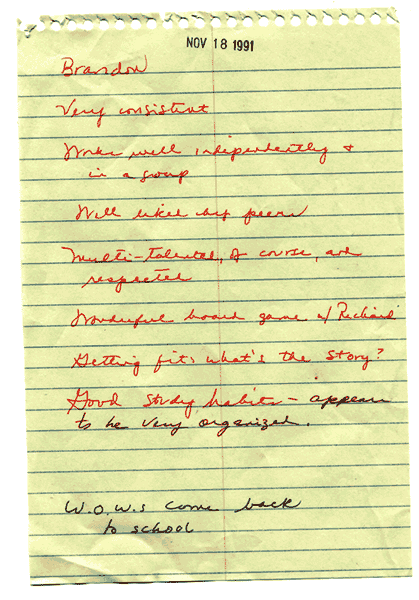 NOV 18 1991
Brandon
Very consistent
Works well independently &
in a group
Well liked by peers
Multi-talented, of course, and
respected
Wonderful board game w/ Richard
Getting fit: what's the story?
Good study habits - appears
to be very organized.
W.O.W.s come back
to school